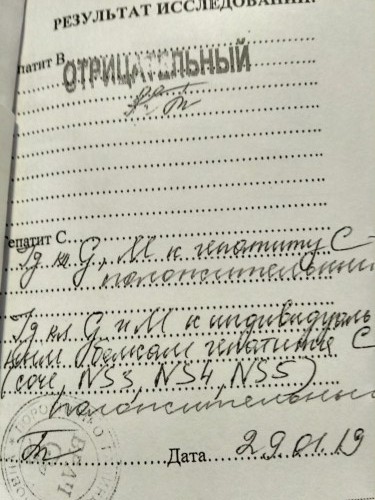 РЕЗУЛЬТАТ ИССЛЕДОВАНИЯ:
епатит В
ОТРИЦАТЕЛЬНЫЙ
Гепатит С
Ig кл G, М к гепатиту С -
положительный
Ig кл G и М к индивидуаль
ным белкам гепатита С
(соrе, NS3, NS4, NS5)
положительный
Дата 29.01.19